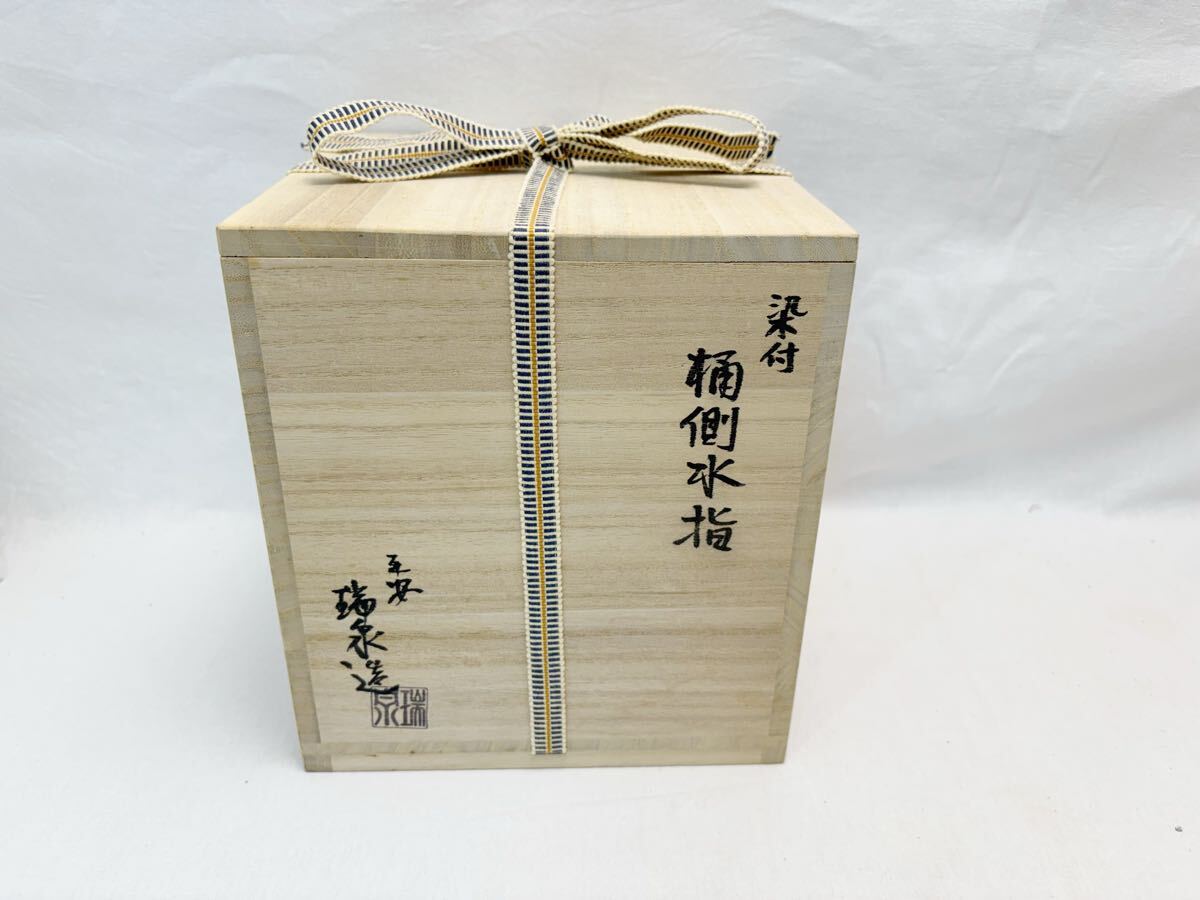 染付
桶側水指
平安
瑞泉造
瑞泉